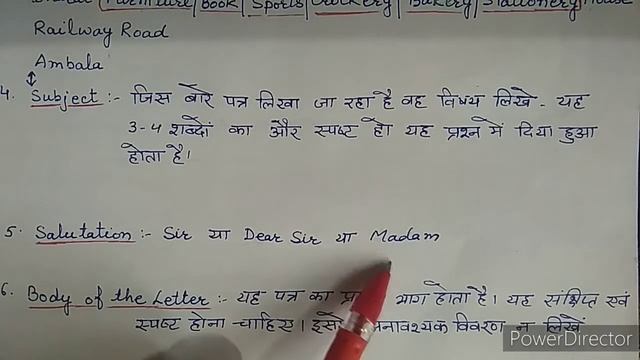 Furniture | Book | Sports | Crockery | Bakery | Stationery House
Railway Road
Ambala
4. Subject :- जिस बारे पत्र लिखा जा रहा है वह विषय लिखे - यह
3-4 शब्दों का और स्पष्ट हो यह प्रश्न में दिया हुआ
होता है।
5. Salutation :- Sir या Dear Sir या Madam
6. Body of the Letter :- यह पत्र का भाग होता है। यह संक्षिप्त एवं
स्पष्ट होना चाहिए। विवरण न लिखें
PowerDirector